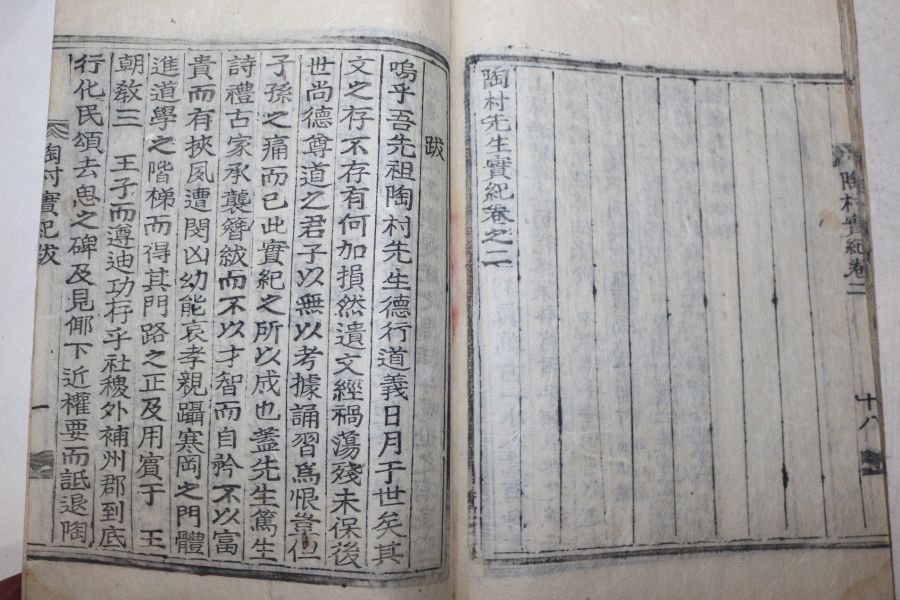 陶村實紀卷二
十八
陶村先生實紀卷之二
跋
嗚乎吾先祖陶村先生德行道義日月于世矣其
文之存不存有何加損然遺文經禍蕩殘未保後
世尚德尊道之君子以無以考據誦習爲恨豈但
子孫之痛而已此實紀之所以成也盖先生篤生
詩禮古家承襲簪紱而不以才智而自矜不以富
貴而有挾夙遭閔凶幼能哀孝親躡寒岡之門體
進道學之階梯而得其門路之正及用賓于 王
朝敎三 王子而遵迪功存乎社稷外補州郡到底
行化民頌去思之碑及見仰下近權要而詆退陶
陶村實紀跋
一